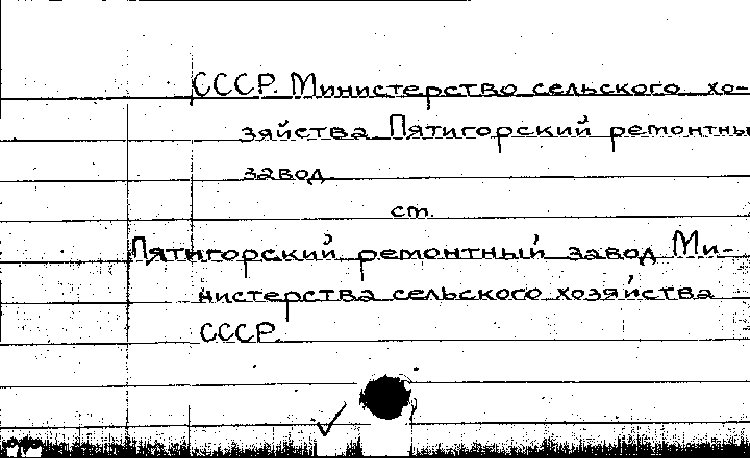 СССР. Министерство сельского хо-
зяйства. Пятигорский ремонтны
завод.
ст.
Пятигорский ремонтный завод Ми-
нистерства сельского хозяйства
СССР.